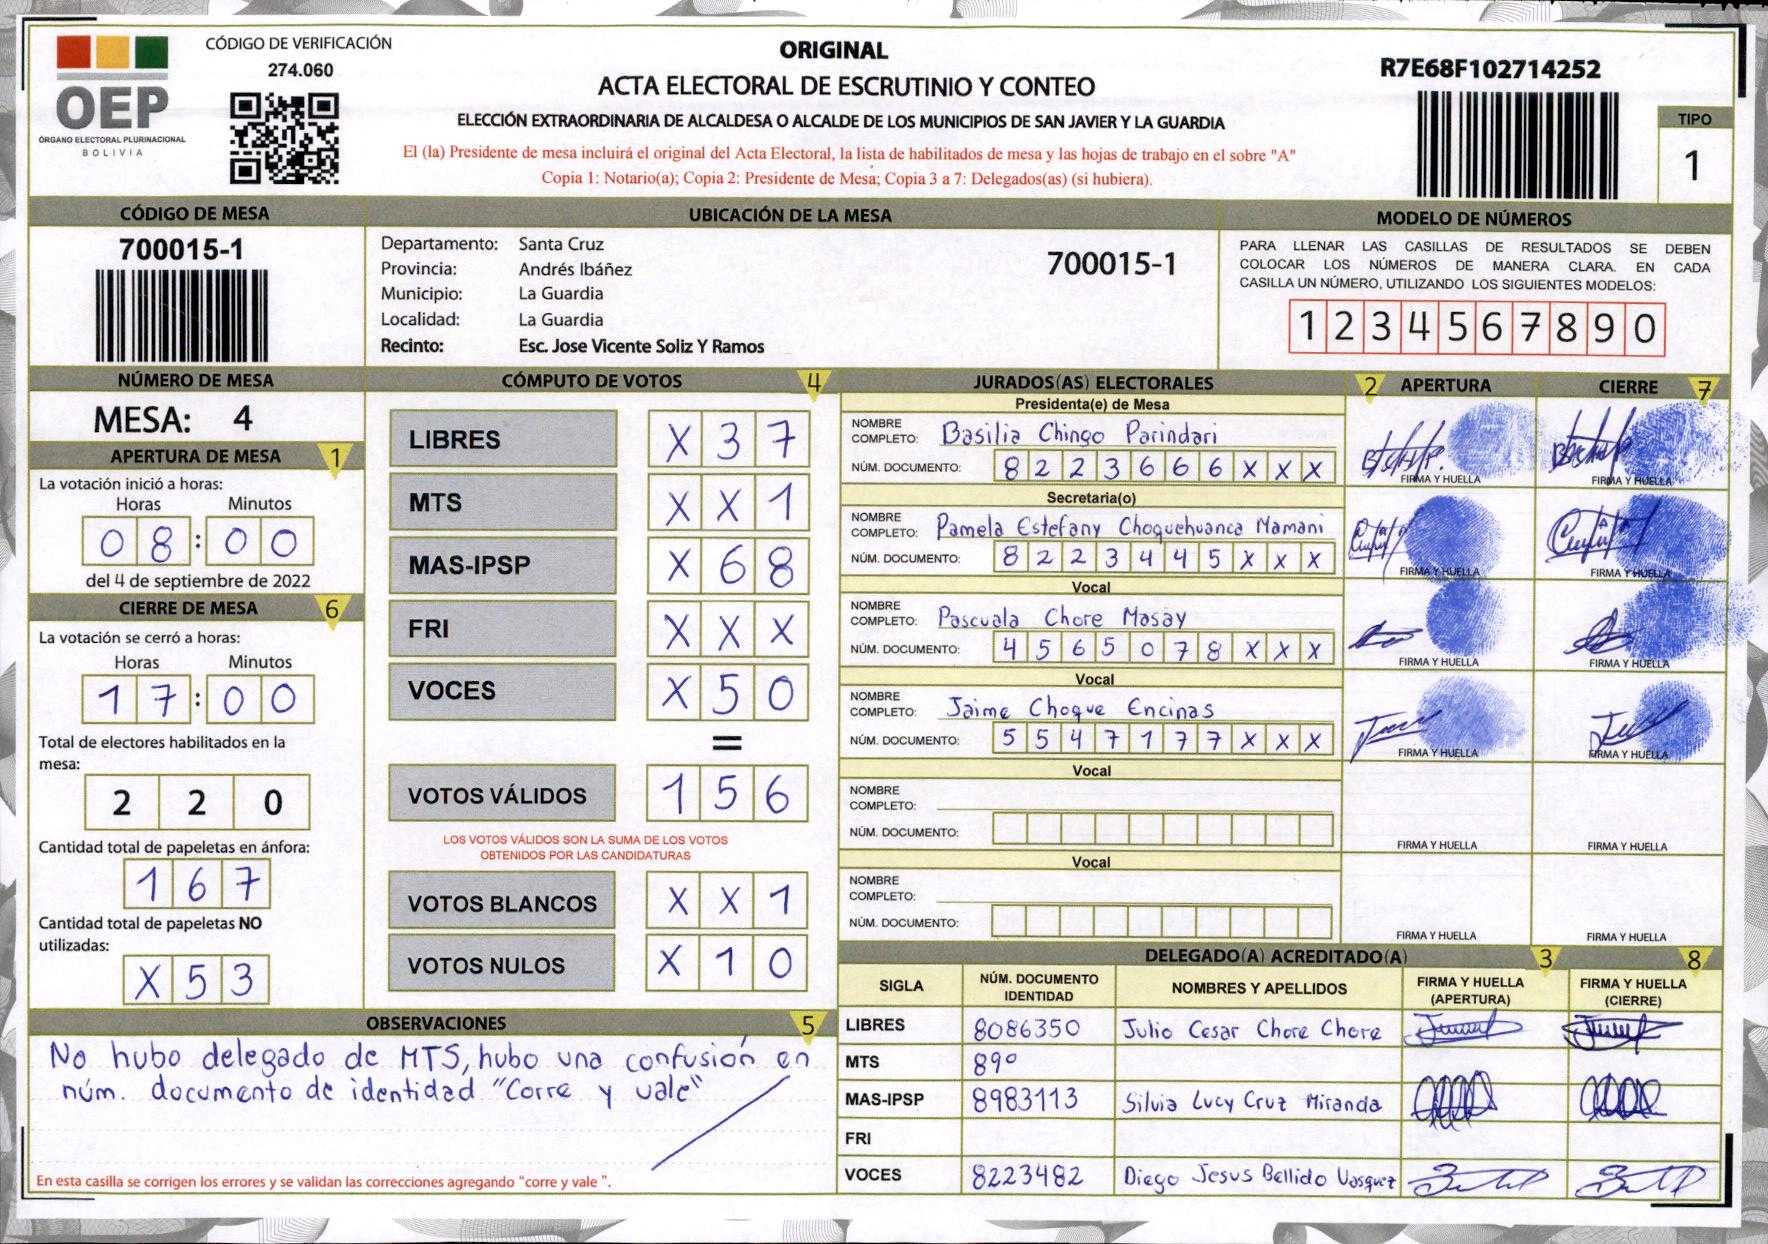 CÓDIGO DE VERIFICACIÓN
274.060
OEP
ÓRGANO ELECTORAL PLURINACIONAL
BOLIVIA
ORIGINAL
ACTA ELECTORAL DE ESCRUTINIO Y CONTEO
ELECCIÓN EXTRAORDINARIA DE ALCALDESA O ALCALDE DE LOS MUNICIPIOS DE SAN JAVIER Y LA GUARDIA
El (la) Presidente de mesa incluirá el original del Acta Electoral, la lista de habilitados de mesa y las hojas de trabajo en el sobre "A"
Copia 1: Notario(a); Copia 2: Presidente de Mesa; Copia 3 a 7: Delegados(as) (si hubiera).
R7E68F102714252
TIPO
1
CÓDIGO DE MESA
700015-1
UBICACIÓN DE LA MESA
Departamento: Santa Cruz
Provincia: Andrés Ibáñez
Municipio: La Guardia
Localidad: La Guardia
Recinto: Esc. Jose Vicente Soliz Y Ramos
700015-1
MODELO DE NÚMEROS
PARA LLENAR LAS CASILLAS DE RESULTADOS SE DEBEN
COLOCAR LOS NÚMEROS DE MANERA CLARA. EN CADA
CASILLA UN NÚMERO, UTILIZANDO LOS SIGUIENTES MODELOS:
1 2 3 4 5 6 7 8 9 0
NÚMERO DE MESA
MESA: 4
APERTURA DE MESA 1
La votación inició a horas:
Horas Minutos
0 8 : 0 0
del 4 de septiembre de 2022
CIERRE DE MESA 6
La votación se cerró a horas:
Horas Minutos
1 7 : 0 0
Total de electores habilitados en la
mesa:
2 2 0
Cantidad total de papeletas en ánfora:
1 6 7
Cantidad total de papeletas NO
utilizadas:
X 5 3
CÓMPUTO DE VOTOS 4
LIBRES X 3 7
MTS X X 1
MAS-IPSP X 6 8
FRI X X X
VOCES X 5 0
=
VOTOS VÁLIDOS 1 5 6
LOS VOTOS VÁLIDOS SON LA SUMA DE LOS VOTOS
OBTENIDOS POR LAS CANDIDATURAS
VOTOS BLANCOS X X 1
VOTOS NULOS X 1 0
OBSERVACIONES 5
No hubo delegado de MTS, hubo una confusión en
núm. documento de identidad "Corre y vale"
En esta casilla se corrigen los errores y se validan las correcciones agregando "corre y vale ".
JURADOS(AS) ELECTORALES 2 APERTURA CIERRE 7
Presidenta(e) de Mesa
NOMBRE
COMPLETO: Basilia Chingo Parindari
NÚM. DOCUMENTO: 8 2 2 3 6 6 6 X X X
FIRMA Y HUELLA FIRMA Y HUELLA
Secretaria(o)
NOMBRE
COMPLETO: Pamela Estefany Choquehuanca Mamani
NÚM. DOCUMENTO: 8 2 2 3 4 4 5 X X X
FIRMA Y HUELLA FIRMA Y HUELLA
Vocal
NOMBRE
COMPLETO: Pascuala Chore Masay
NÚM. DOCUMENTO: 4 5 6 5 0 7 8 X X X
FIRMA Y HUELLA FIRMA Y HUELLA
Vocal
NOMBRE
COMPLETO: Jaime Choque Encinas
NÚM. DOCUMENTO: 5 5 4 7 1 7 7 X X X
FIRMA Y HUELLA FIRMA Y HUELLA
Vocal
NOMBRE
COMPLETO:
NÚM. DOCUMENTO:
FIRMA Y HUELLA FIRMA Y HUELLA
Vocal
NOMBRE
COMPLETO:
NÚM. DOCUMENTO:
FIRMA Y HUELLA FIRMA Y HUELLA
DELEGADO(A) ACREDITADO(A) 3 8
SIGLA NÚM. DOCUMENTO IDENTIDAD NOMBRES Y APELLIDOS FIRMA Y HUELLA (APERTURA) FIRMA Y HUELLA (CIERRE)
LIBRES 8086350 Julio Cesar Chore Chore
MTS 89º
MAS-IPSP 8983113 Silvia Lucy Cruz Miranda
FRI
VOCES 8223482 Diego Jesus Bellido Vasquez